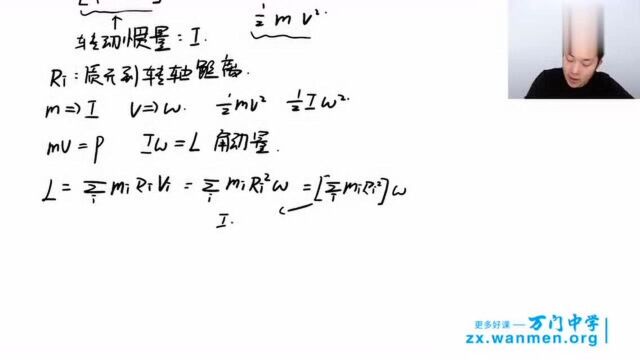 ½ m v²
转动惯量: I.
Ri: 质元到转轴距离.
m⇒I v⇒ω. ½mv² ½Iω².
mv=p Iω=L 角动量.
L = ∑i mi Ri Vi = ∑i mi Ri² ω = [∑i mi Ri²] ω
I.
更多好课 — 万门中学
zx.wanmen.org